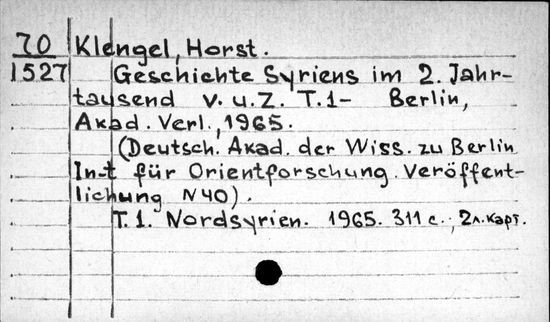 70 Klengel, Horst.
1527 Geschichte Syriens im 2. Jahr-
tausend v. u. Z. T.1- Berlin,
Akad. Verl., 1965.
(Deutsch. Akad. der Wiss. zu Berlin
In-t für Orientforschung. Veröffent-
lichung N 40).
T. 1. Nordsyrien. 1965. 311 с., 2 л. карт.